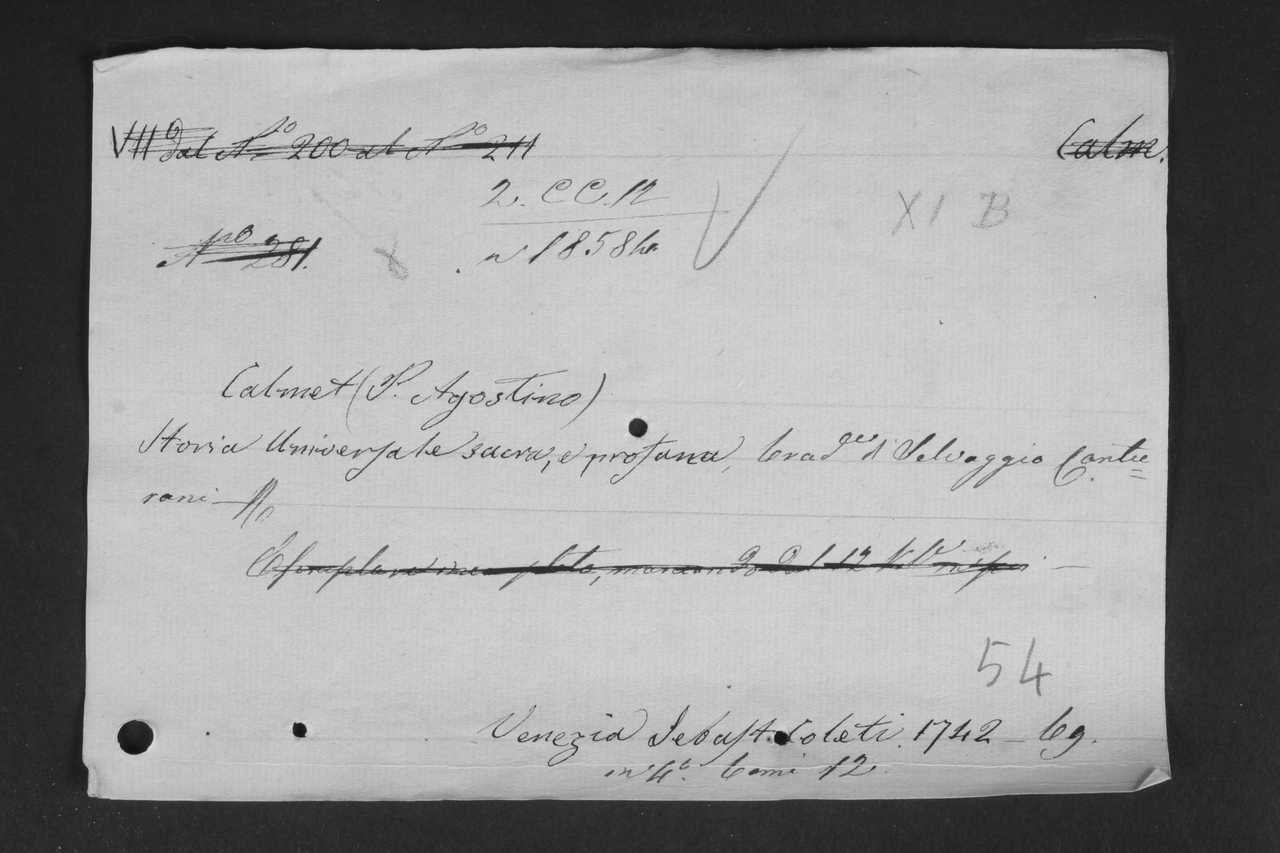 VII Dal Nº 200 al Nº 211 Calm.
2. CC. 12
Nº 281.
n 1858
XI B
Calmet (P. Agostino)
Storia Universale sacra, e profana, trad. di Selvaggio Cante=
rani
Esemplare incompleto, mancando
54
Venezia Sebast. Coleti. 1742 - Lg.
in 4º. tomi 12.